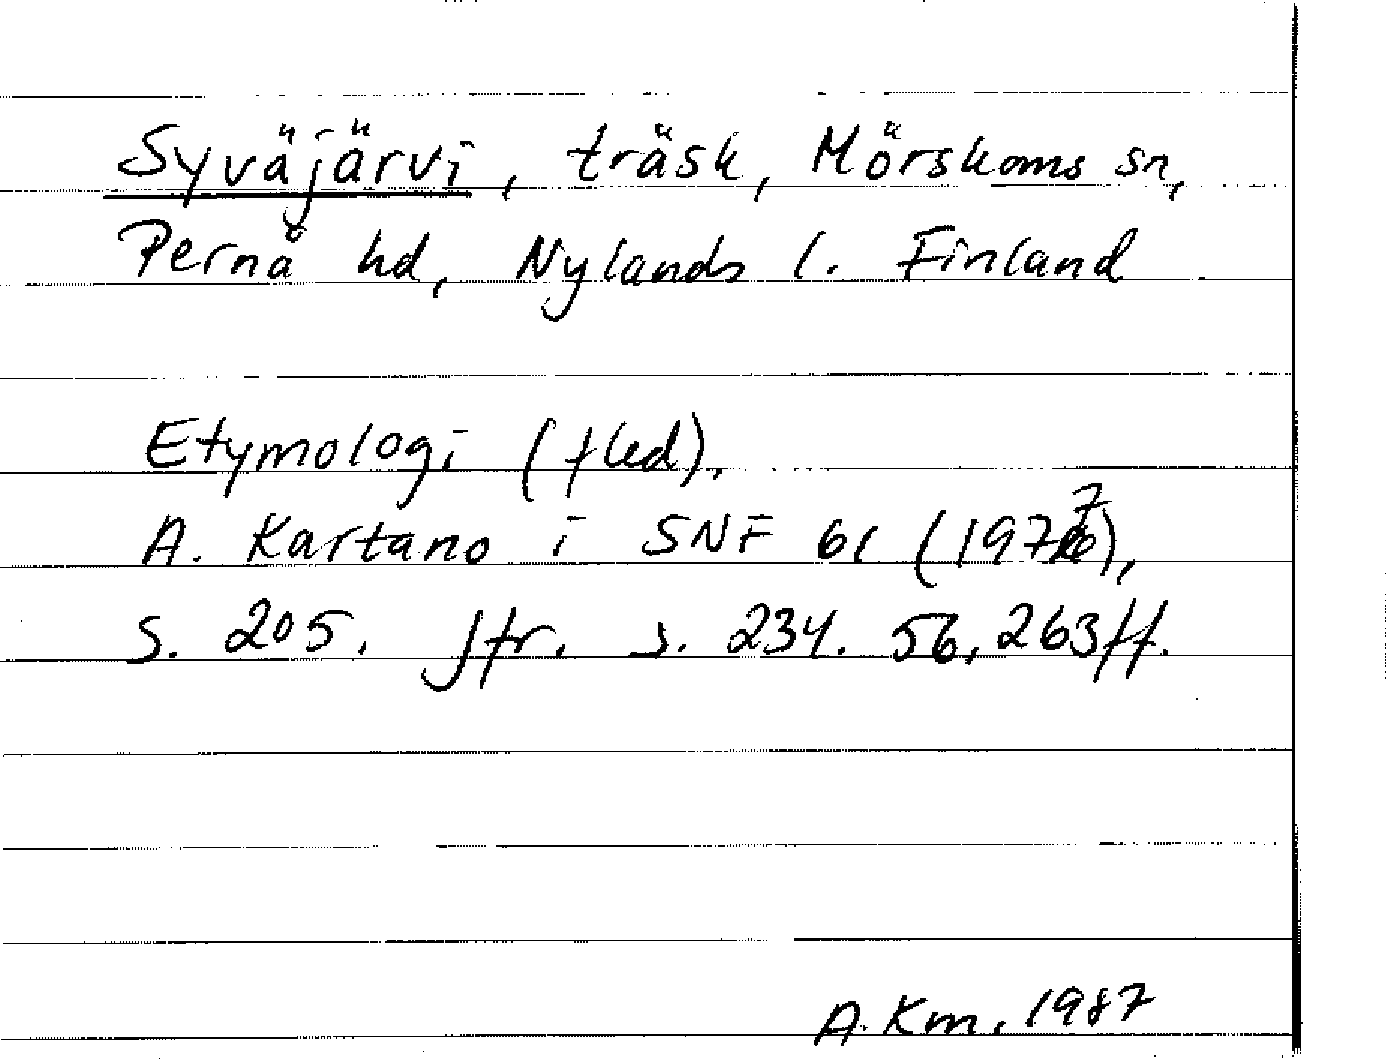 Syväjärvi, träsk, Mörskoms sn,
Pernå hd, Nylands l. Finland
Etymologi (fled).
A. Kartano i SNF 61 (1977),
S. 205. Jfr. s. 234. 56, 263ff.
A. Km. 1987